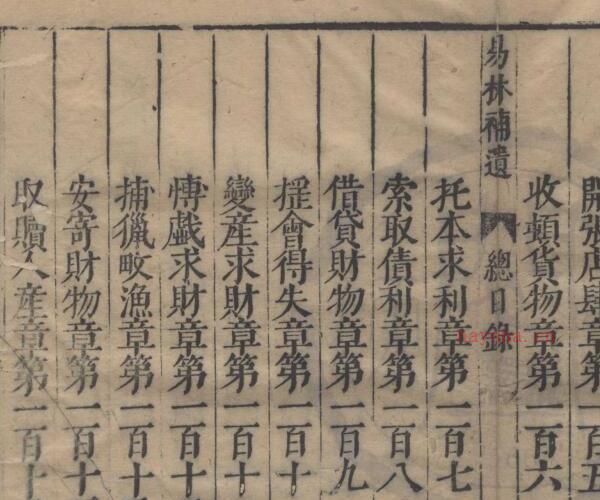 開張店肆章第一百五
收頓貨物章第一百六
易林補遺 總目錄
托本求利章第一百七
索取債利章第一百八
借貸財物章第一百九
搖會得失章第一百十
變產求財章第一百十
愽戲求財章第一百十
捕獵畋漁章第一百十
安寄財物章第一百十
取贖人產章第一百十